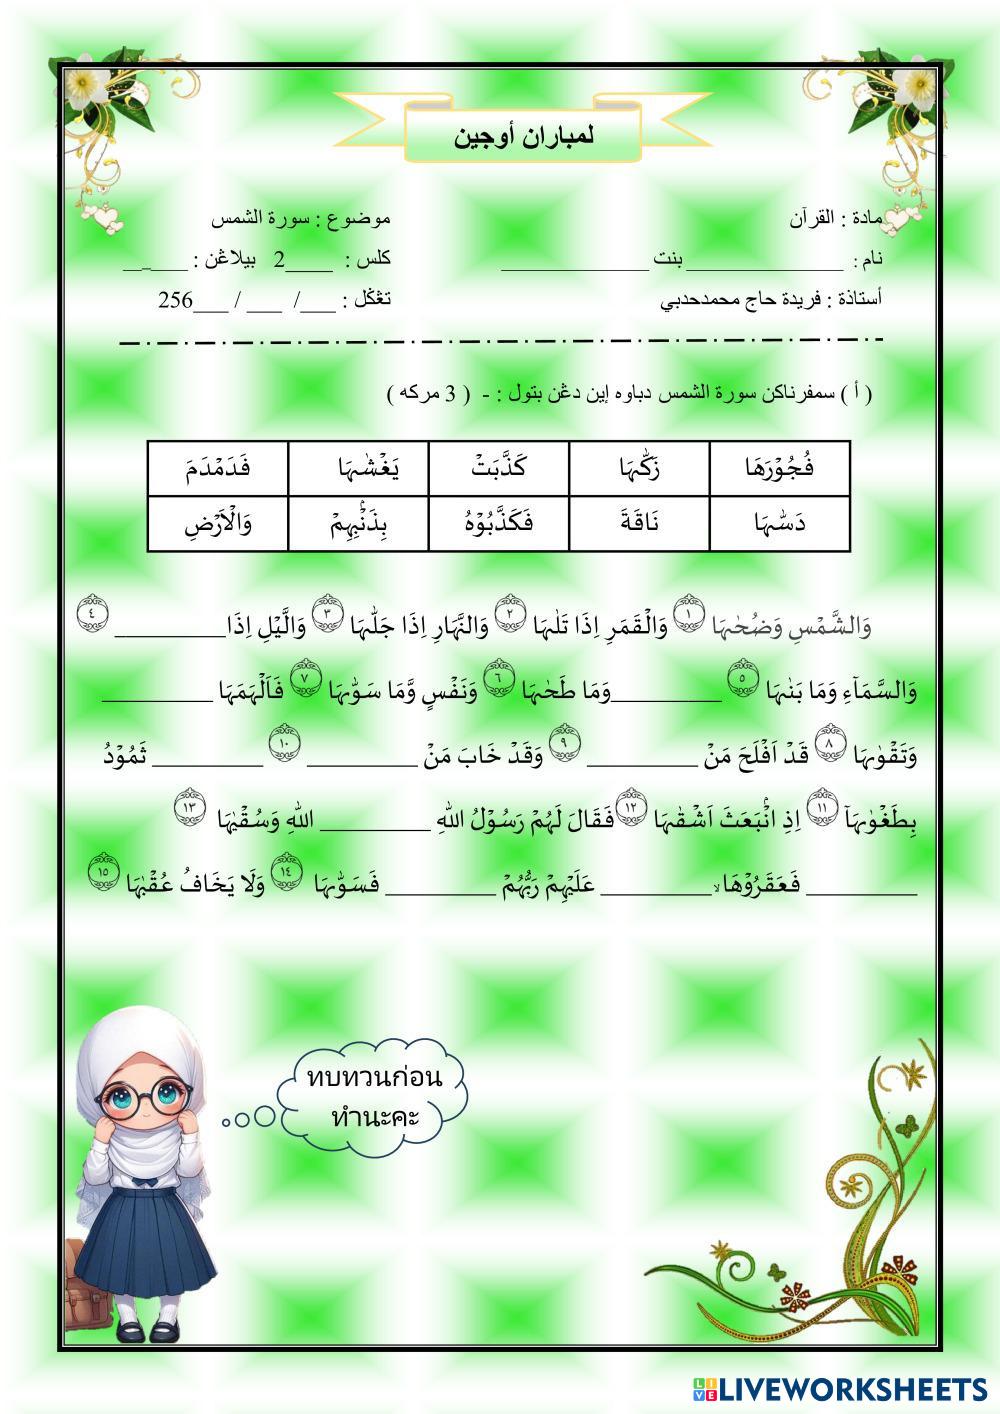 لمباران أوجين
مادة : القرآن موضوع : سورة الشمس
نام : ______________ بنت ______________ كلس : ____2 بيلاڠن : ___ــ__
أستاذة : فريدة حاج محمدحدبي تڠكل : ___/ ___ / ___256
( أ ) سمفرناكن سورة الشمس دباوه إين دڠن بتول : - ( 3 مركه )
فُجُوْرَهَا زَكّٰىهَا كَذَّبَتْ يَغْشٰىهَا فَدَمْدَمَ
دَسّٰىهَا نَاقَةَ فَكَذَّبُوْهُ بِذَنْۢبِهِمْ وَالْاَرْضِ
وَالشَّمْسِ وَضُحٰىهَا ١ وَالْقَمَرِ اِذَا تَلٰىهَا ٢ وَالنَّهَارِ اِذَا جَلّٰىهَا ٣ وَالَّيْلِ اِذَا__________ ٤
وَالسَّمَآءِ وَمَا بَنٰىهَا ٥ __________وَمَا طَحٰىهَا ٦ وَنَفْسٍ وَّمَا سَوّٰىهَا ٧ فَاَلْهَمَهَا __________
وَتَقْوٰىهَا ٨ قَدْ اَفْلَحَ مَنْ __________ ٩ وَقَدْ خَابَ مَنْ __________ ١٠ __________ ثَمُوْدُ
بِطَغْوٰىهَآ ١١ اِذِ انْۢبَعَثَ اَشْقٰىهَا ١٢ فَقَالَ لَهُمْ رَسُوْلُ اللهِ __________ اللهِ وَسُقْيٰهَا ١٣
__________ فَعَقَرُوْهَا ۙ__________ عَلَيْهِمْ رَبُّهُمْ __________ فَسَوّٰىهَا ١٤ وَلَا يَخَافُ عُقْبٰىهَا ١٥
ทบทวนก่อน
ทำนะคะ
LIVE LIVEWORKSHEETS